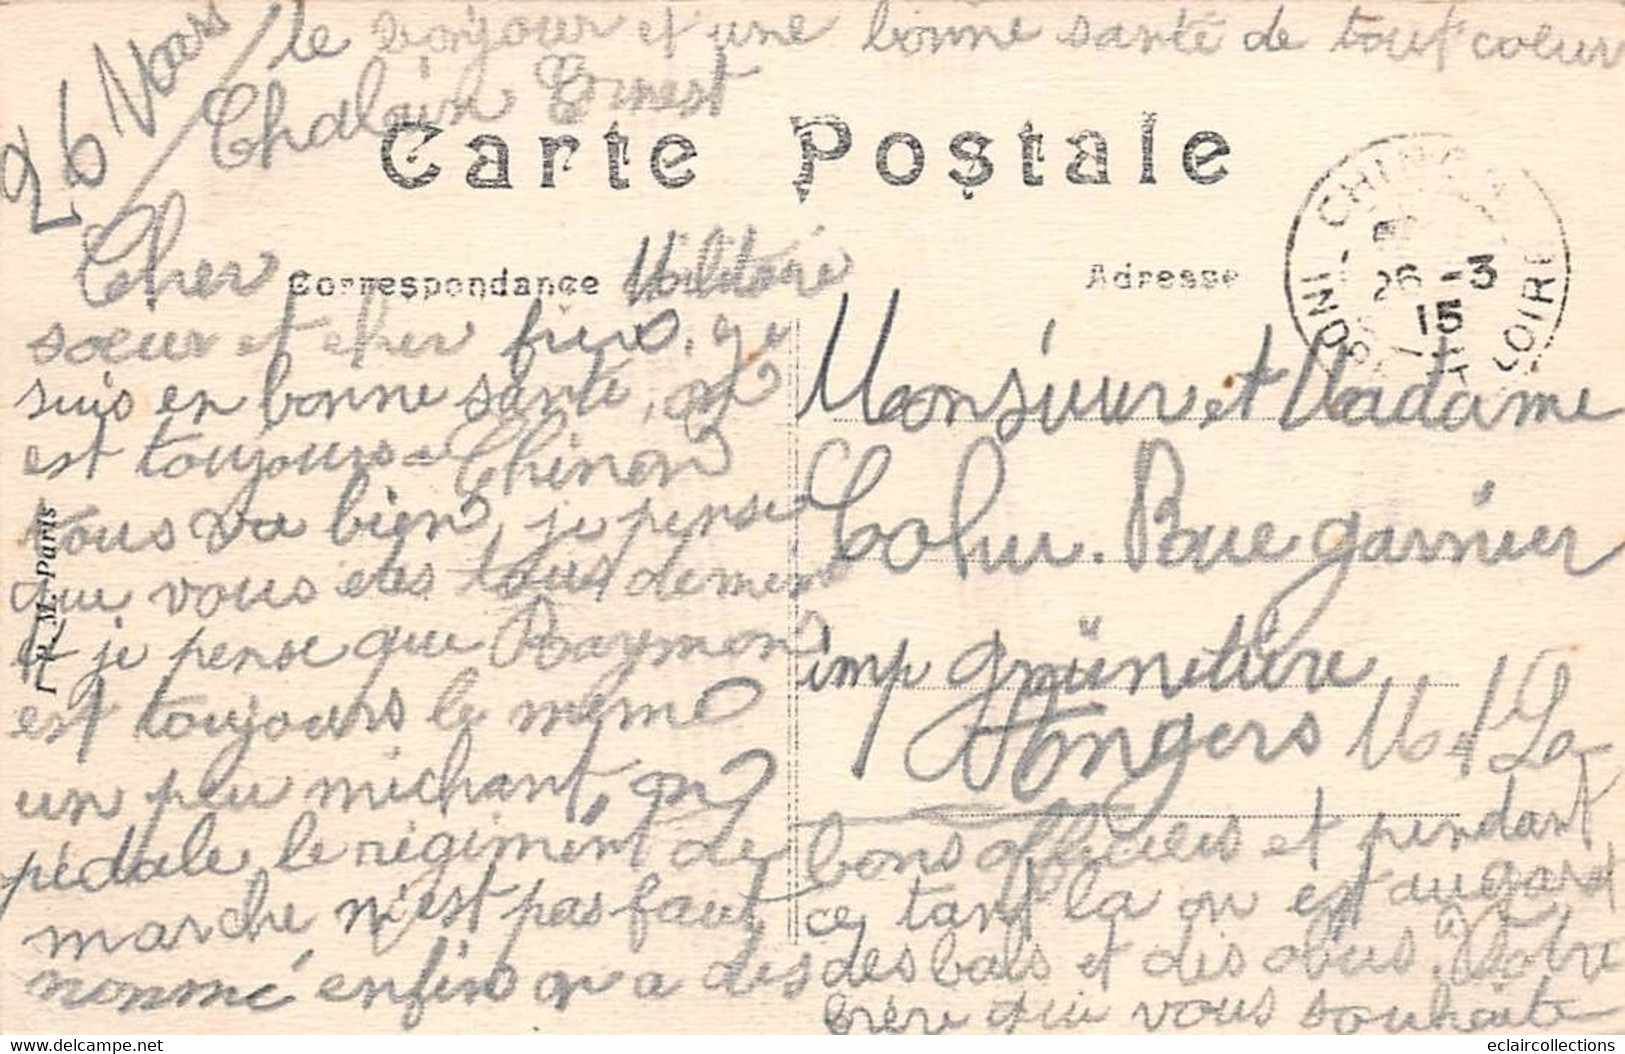 26 Mars
le bonjour et une bonne santé de tout coeur
Chalain Ernest
Carte Postale
Correspondance
Adresse
Militaire
CHINON
26 -3
15
INDRE-&-LOIRE
Cher
soeur et cher frère, je
suis en bonne santé, on
est toujours a Chinon
tous va bien, je pense
que vous etes tous de meme
et je pense que Raymon
est toujours le meme
un peu michant, on
pédale le régiment de
marche n'est pas faut
nommé enfin on a des
bons officiers et pendant
ce tant la on est au gard
des bals et des obus. Votre
frère qui vous souhaite
Monsieur et Madame
Colui. Rue garnier
imp
Angers M et La
M. Paris
eclaircollections